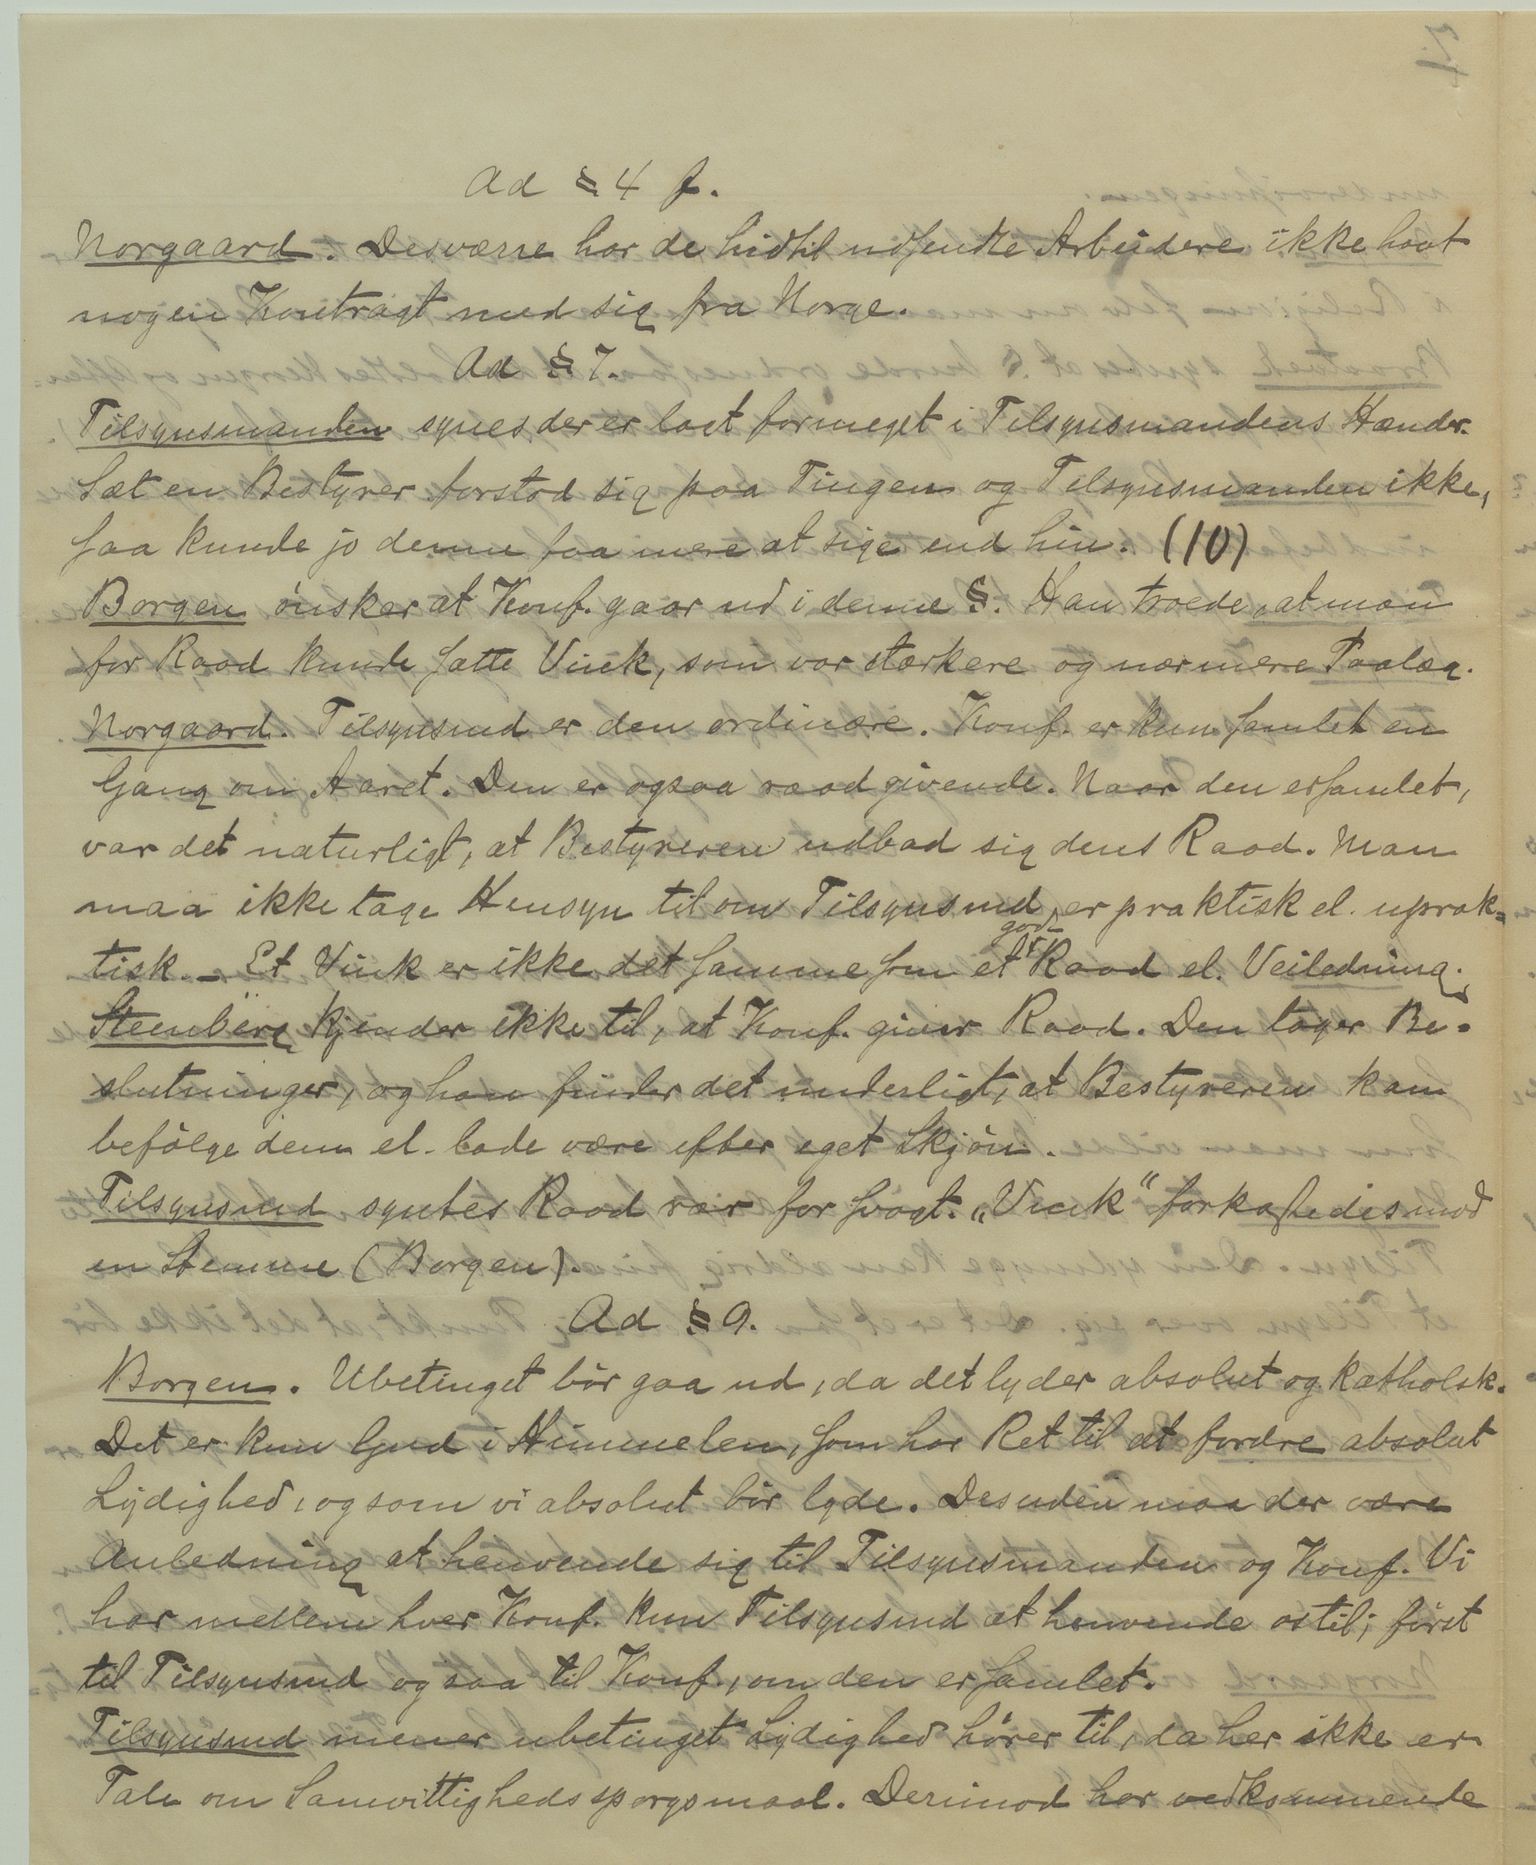 Ad § 4 f.
Norgaard. Desværre har de hidtil udsendte Arbeidere ikke havt
nogen Kontragt med sig fra Norge.
Ad § 7.
Tilsynsmanden synes der er lagt formeget i Tilsynsmandens Hænder.
Sæt en Bestyrer forstod sig paa Tingen og Tilsynsmanden ikke,
saa kunde jo denne faa mere at sige end hin. (10)
Borgen ønsker at Konf. gaar ud i denne §. Han troede, at man
for Raad kunde sætte Vink, som var stærkere og nærmere Paalæg.
Norgaard. Tilsynsmd er den ordinære. Konf. er kun samlet en
Gang om Aaret. Den er ogsaa raadgivende. Naar den er samlet,
var det naturligt, at Bestyreren udbad sig dens Raad. Man
maa ikke tage Hensyn til om Tilsynsmd er praktisk el. uprak=
tisk. – Et Vink er ikke det samme som et godt Raad el. Veiledning.
Steenberg kjender ikke til, at Konf. giver Raad. Den tager Be-
slutninger, og han finder det underligt, at Bestyreren kan
befölge dem el. lade være efter eget Skjön.
Tilsynsmd syntes Raad var for svagt. „Vink" forkastedes mod
en Stemme (Borgen).
Ad § 9.
Borgen. Ubetinget bör gaa ud, da det lyder absolut og katholsk.
Det er kun Gud i Himmelen, som har Ret til at fordre absolut
Lydighed, og som vi absolut bör lyde. Desuden maa der være
Anledning at henvende sig til Tilsynsmanden og Konf. Vi
har mellem hver Konf. kun Tilsynsmd at henvende os til; först
til Tilsynsmd og saa til Konf., om den er samlet.
Tilsynsmd mener ubetinget Lydighed hörer til, da her ikke er
Tale om Samvittighedsspørgsmaal. Derimod har vedkommende